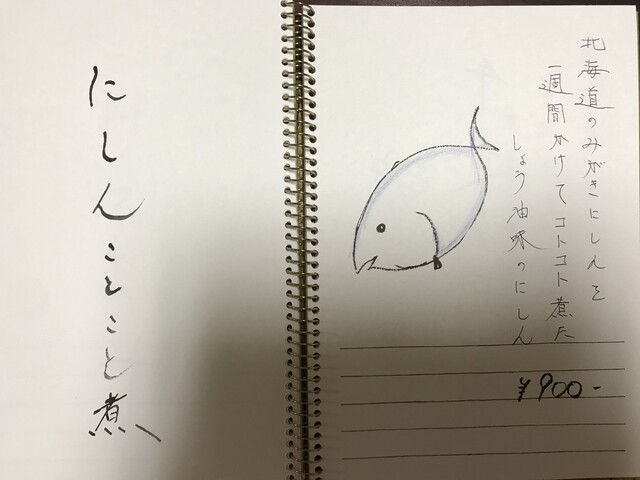 にしんことこと煮
北海道のみがきにしんを
一週間かけてコトコト煮た
しょう油味のにしん
¥900-